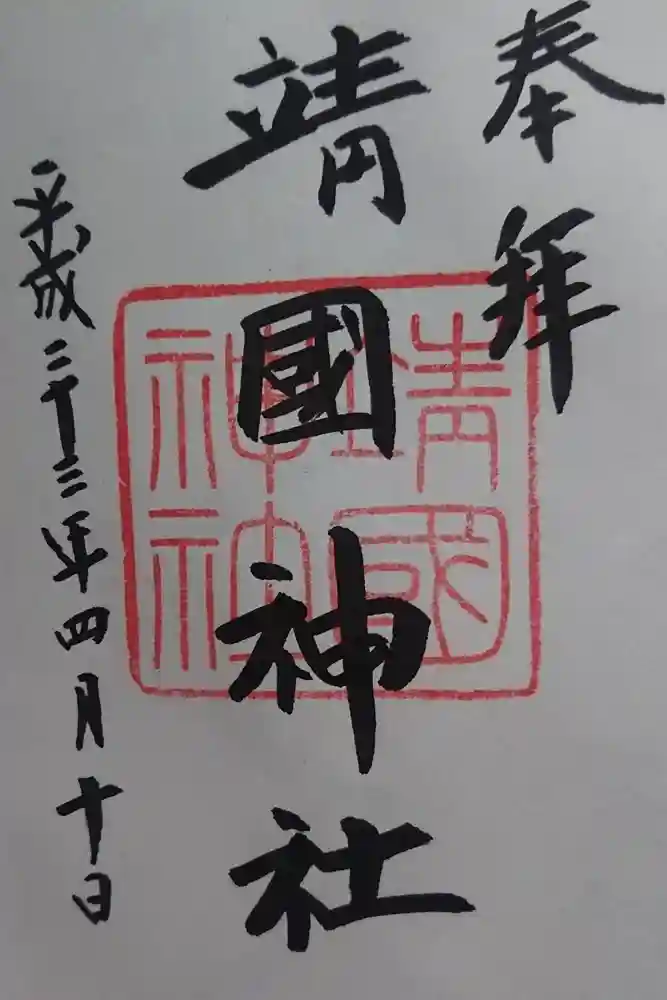 奉拝
靖國神社
靖國
神社
平成二十三年四月十日